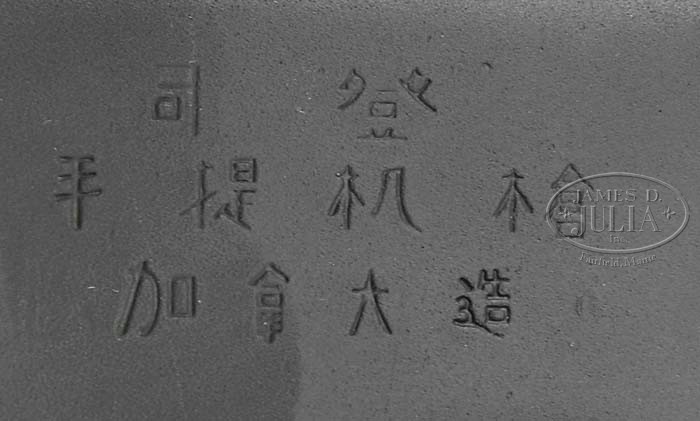 司登
手提机槍
加拿大造
JAMES D.
JULIA
Inc.
Fairfield, Maine